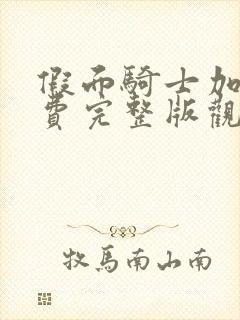 假面騎士加
費完整版觀
牧馬南山南